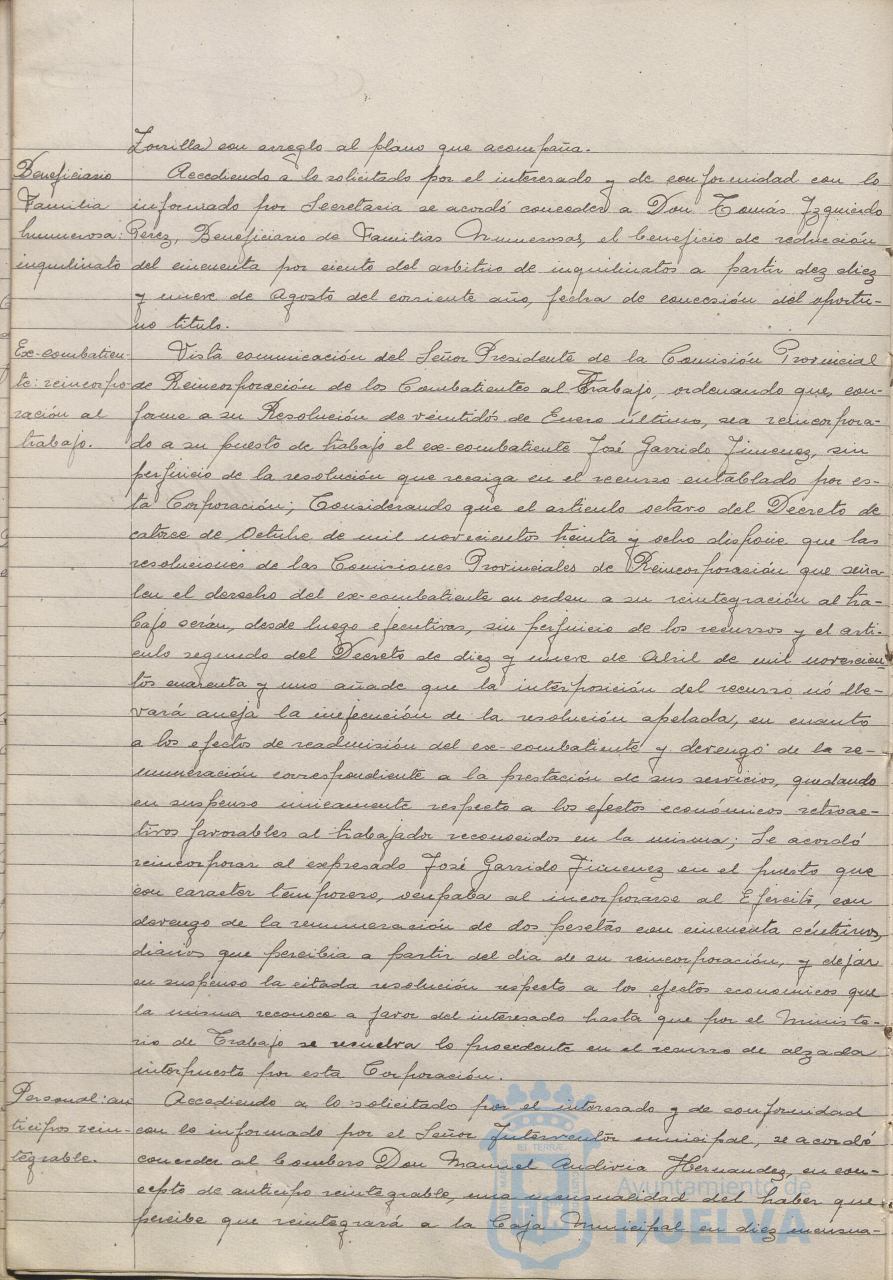 Zorrilla con arreglo al plano que acompaña.
Beneficiario
Familia
numerosa:
inquilinato
Accediendo a lo solicitado por el interesado y de conformidad con lo
informado por Secretaria se acordó conceder a Don Tomás Izquierdo
Perez, Beneficiario de Familias Numerosas, el beneficio de reducción
del cincuenta por ciento del arbitrio de inquilinatos a partir dez diez
y nueve de Agosto del corriente año, fecha de concesión del oportu-
no titulo.
Ex-combatien-
te: reincorpo-
ración al
trabajo.
Vista comunicación del Señor Presidente de la Comisión Provincial
de Reincorporación de los Combatientes al Trabajo, ordenando que, con-
forme a su Resolución de veintidós de Enero último, sea reincorpora-
do a su puesto de trabajo el ex-combatiente José Garrido Jimenez, sin
perjuicio de la resolución que recaiga en el recurso entablado por es-
ta Corporación; Considerando que el articulo octavo del Decreto de
catorce de Octubre de mil novecientos treinta y ocho dispone que las
resoluciones de las Comisiones Provinciales de Reincorporación que seña-
len el derecho del ex-combatiente en orden a su reintegración al tra-
bajo serán, desde luego ejecutivas, sin perjuicio de los recursos y el arti-
culo segundo del Decreto de diez y nueve de Abril de mil novescien-
tos cuarenta y uno añade que la interposición del recurso nó lle-
vará aneja la inejecución de la resolución apelada, en cuanto
a los efectos de readmisión del ex-combatiente y devengo de la re-
muneración correspondiente a la prestación de sus servicios, quedando
en suspenso unicamente respecto a los efectos económicos retroac-
tivos favorables al trabajador reconocidos en la misma; Se acordó
reincorporar al expresado José Garrido Jimenez en el puesto que
con caracter temporero, ocupaba al incorporarse al Ejercito, con
devengo de la remuneración de dos pesetas con cincuenta céntimos,
diarios que percibia a partir del dia de su reincorporación, y dejar
en suspenso la citada resolución respecto a los efectos economicos que
la misma reconoce a favor del interesado hasta que por el Ministe-
rio de Trabajo se resuelva lo procedente en el recurso de alzada
interpuesto por esta Corporación.
Personal: an
ticipos rein-
tegrable.
Accediendo a lo solicitado por el interesado y de conformidad
con lo informado por el Señor Interventor municipal, se acordó
conceder al bombero Don Manuel Andivia Hernandez, en con-
cepto de anticipo reintegrable, una mensualidad del haber que
percibe que reintegrará a la Caja Municipal en diez mensua-
Ayuntamiento de
HUELVA